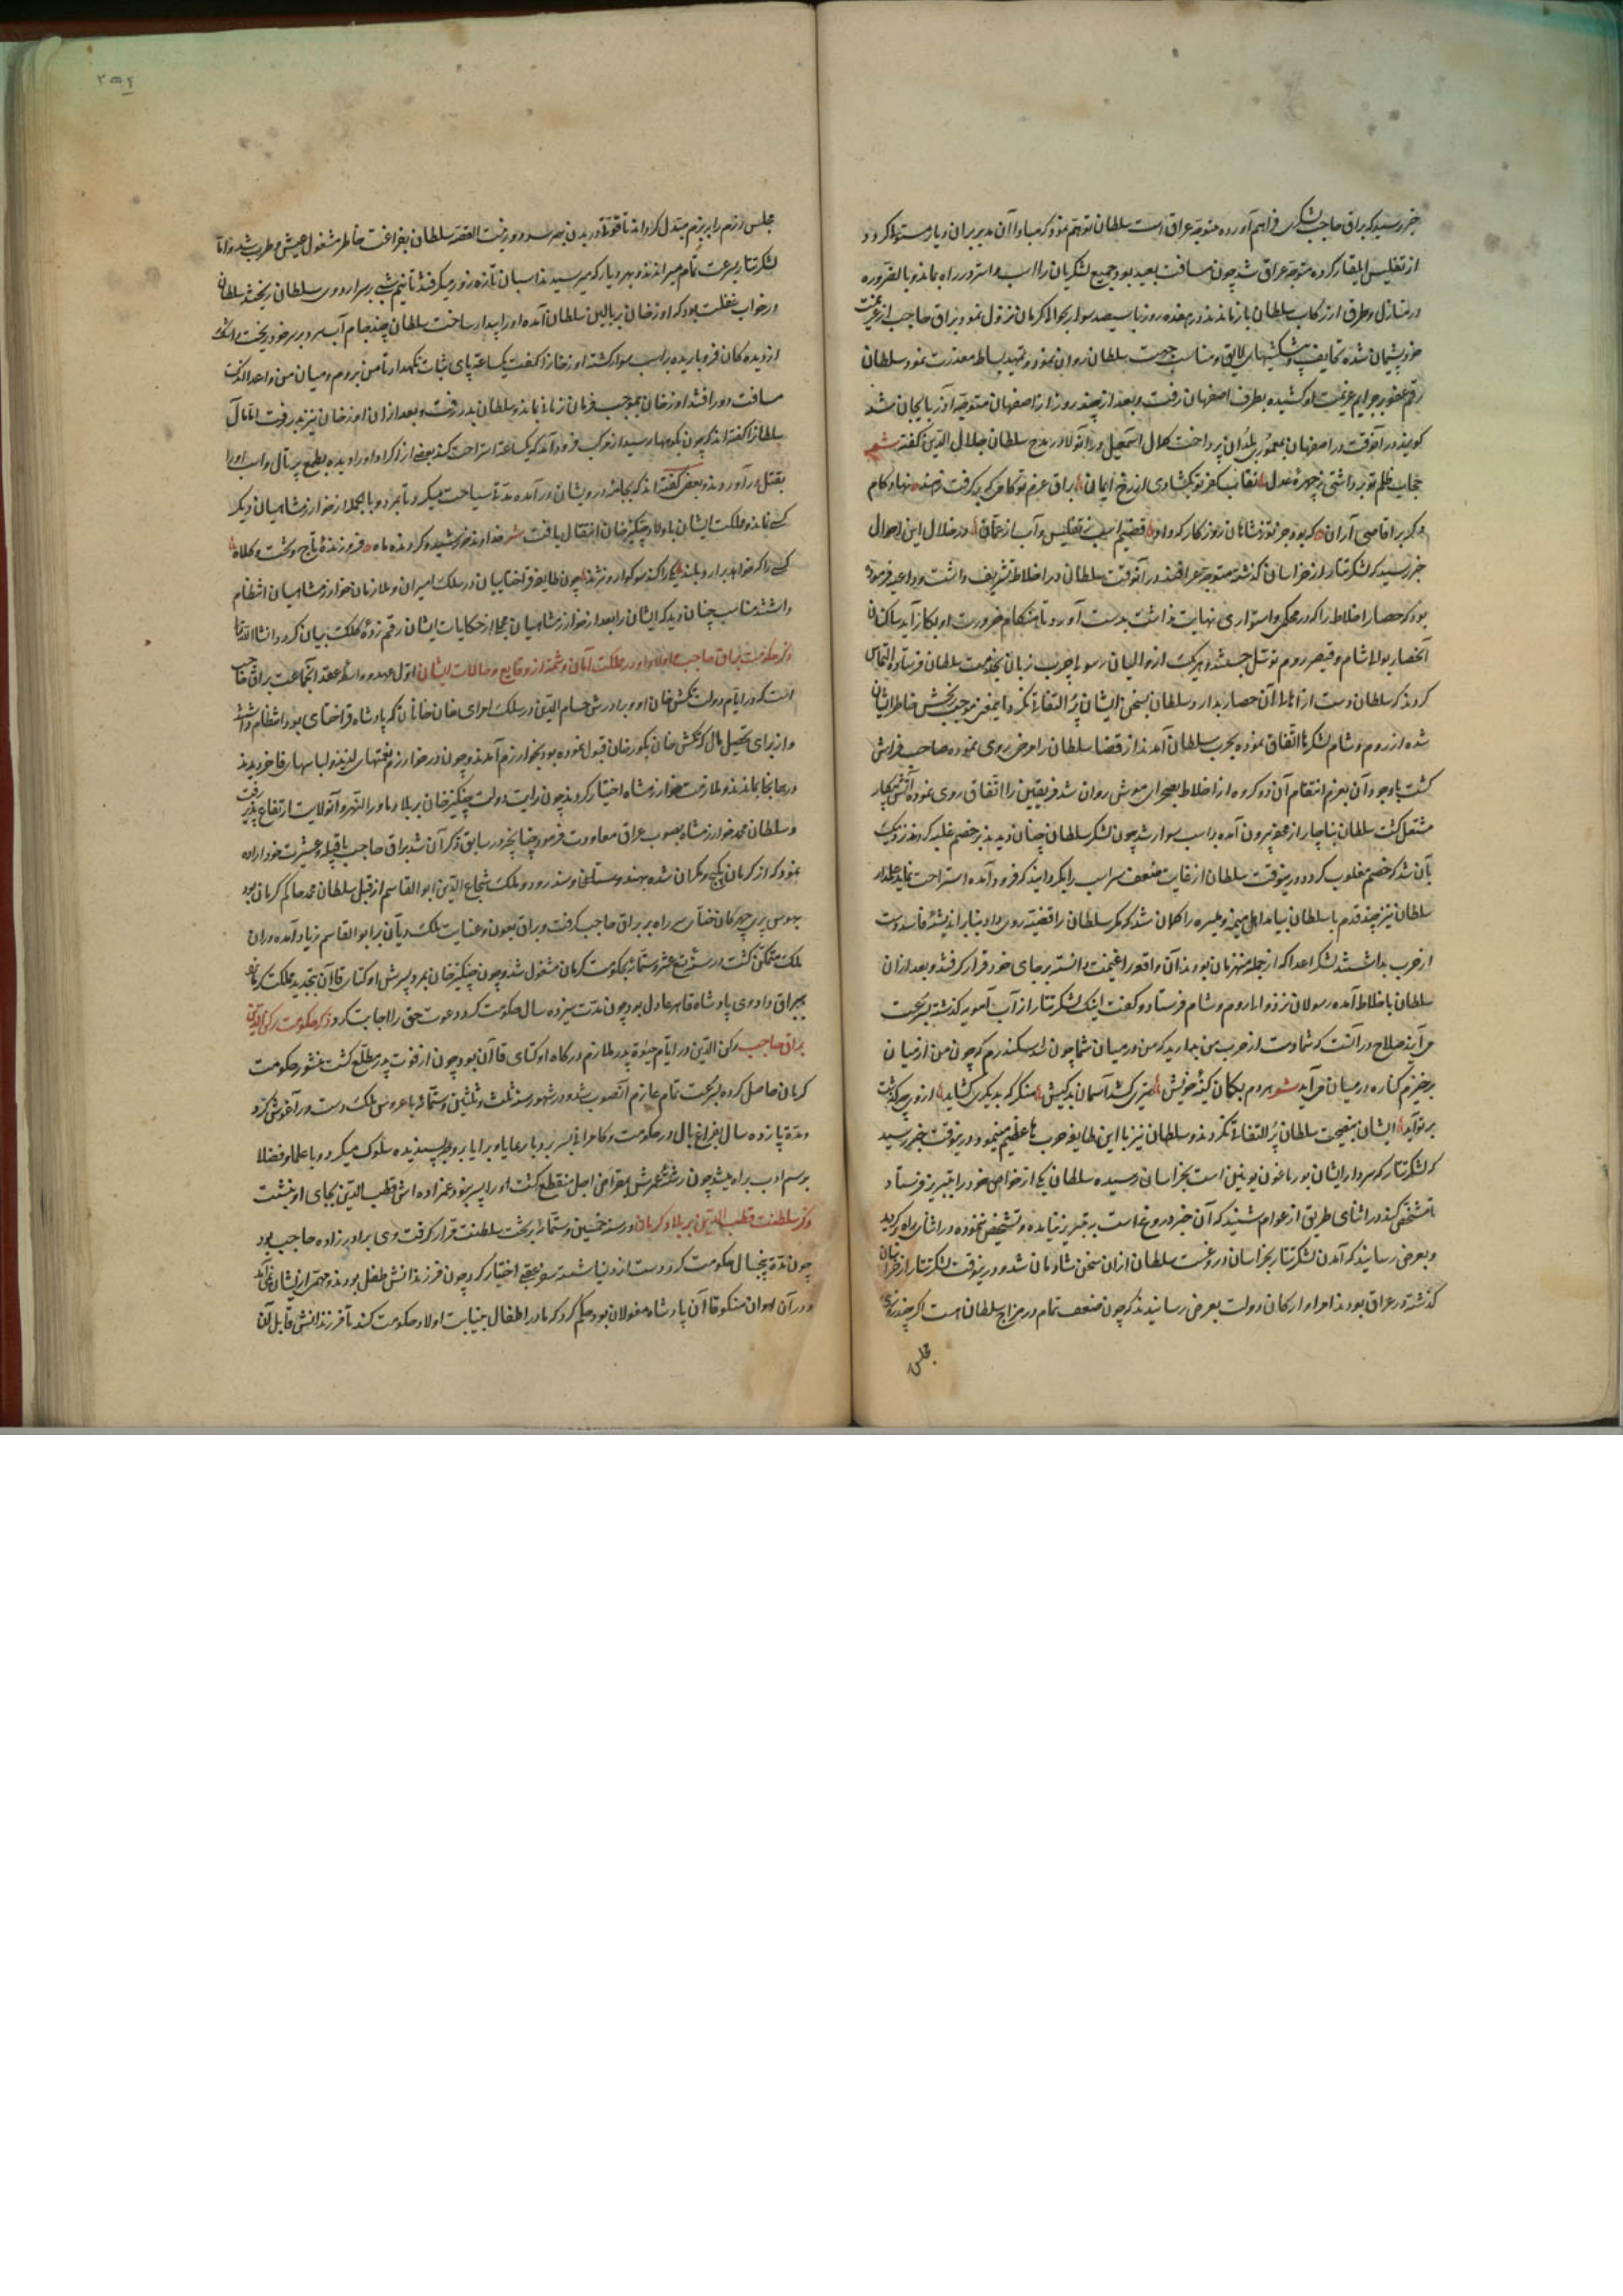 خبر رسید که براق حاجب لشکری فراهم آورده متوجه عراق است سلطان توهم نمود که مبادا آن مدبر بران دیار مستولی گردد
از تفلیس ایلغار کرده متوجه عراق شد چون مسافت بعید بود جمیع لشکریان را اسب و استر در راه بماند و بالضروره
در منازل و طرق از رکاب سلطان بازماندند در هفده روز با سیصد سوار بحوالی کرمان نزول نمود و براق حاجب از عزیمت
خود پشیمان شده تحایف و پیشکشهای لایق و مناسب جهت سلطان روان نمود و تمهید بساط معذرت نمود سلطان
رقم عفو بر جرایم عزیمت او کشیده بطرف اصفهان رفت و بعد از چند روز از اصفهان متوجه آذربایجان شد
گویند در آنوقت در اصفهان بمعموری بلدان پرداخت کمال اسمعیل در مدح سلطان جلال الدین گفته شعر
حجاب ظلم تو برداشتی ز چهره عدل نقاب کفر تو بگشادی از رخ ایمان براق عزم تو
که بود جز تو ز شاهان روزگار که داد قضیم اسب ز تفلیس و آب از عمان در خلال این احوال
خبر رسید که لشکر تتار از خراسان گذشته متوجه عراقند در آنوقت سلطان در اخلاط تشریف داشت و داعیه فرموده
بود که حصار اخلاط را که در محکمی و استواری نهایت نداشت بدست آورد تا هنگام ضرورت او بکار آید ساکنان
آنحصار بوالی شام و قیصر روم توسل جستند و هر یک از والیان رسولی چرب زبان بخدمت سلطان فرستاده التماس
کردند که سلطان دست از اهالی آن حصار بدارد سلطان بسخن ایشان پر التفاتی نکرد و این معنی موجب رنجش خاطر ایشان
شده از روم و شام لشکرها اتفاق نموده بحرب سلطان آمدند از قضا سلطان را مرضی روی نموده صاحب فراش
گشت با وجود آن بعزم انتقام آن دو گروه از اخلاط بصحرای موش روان شد فریقین را اتفاق روی نموده آتش پیکار
مشتعل گشت سلطان بناچار از محفه بیرون آمده بر اسب سوار شد چون لشکر سلطان چنان دیدند بر خصم غلبه کردند و نزدیک
بآن شد که خصم مغلوب گردد درینوقت سلطان از غایت ضعف سر اسب را بگردانید که فرود آمده استراحت نماید علمدار
سلطان نیز چند قدم با سلطان بیامد اهل میمنه و میسره را گمان شد که مگر سلطان را قضیه روی داد بنابر اندیشه فاسد دست
از حرب بداشتند لشکر اعدا که از جمله منهزمان بودند آن واقعه را غنیمت دانسته بر جای خود قرار گرفتند و بعد از آن
سلطان باخلاط آمده رسولان نزد والی روم و شام فرستاد و گفت اینک لشکر تتار از آب آمویه گذشته بسرعت
می‌آیند صلاح در آنست که شما دست از حرب من بدارید که من در میان شما چون سد سکندرم که چون من از میان
برخیزم کناره در میان می‌آید شعر مردم بگمان کینه خویش
بر تو آید ایشان بنصیحت سلطان پر التفاتی نکردند و سلطان نیز با این طایفه حرب‌های عظیم مینمود درینوقت خبر رسید
که لشکر تتار که سردار ایشان جورماغون نویین است بخراسان رسیده سلطان یکی از خواص خود را بتبریز فرستاد
تا مشخص کند در اثنای طریق از عوام شنید که آن خبر دروغ است به تبریز نیامده و تشخیص ننموده از راه گردید
و بعرض رسانید که آمدن لشکر تتار بخراسان دروغست سلطان ازان سخن شادمان شد و درینوقت لشکر تتار از خراسان
گذشته در عراق بودند امرا و ارکان دولت بعرض رسانیدند که چون ضعف تمام در مزاج سلطان است اگر چند روزی
مجلس
۲۵۴
مجلس رزم را ببزم مبدل گرداند تا قوتی در بدن بهم رسد دور نیست القصه سلطان بفراغت خاطر مشغول عیش و طرب شد و اما
لشکر تتار بسرعت تمام میراندند و بهر دیار که میرسیدند اسبان تازه زور میگرفتند تا نیم شبی بر سر اردوی سلطان ریختند سلطان
در خواب غفلت بود که اورخان ببالین سلطان آمده او را بیدار ساخت سلطان چند جام آب سرد بر سر خود ریخت و اشک
از دیده‌گان فرو باریده بر اسب سوار گشته اورخان را گفت یکساعت پای ثبات نگهدار تا من بروم و میان من و اعدا اندک
مسافت دور افتد اورخان بموجب فرمان زمانی بماند و سلطان بدر رفت و بعد ازان اورخان نیز بدر رفت اما مآل
سلطانرا گفته‌اند که چون بکوهها رسید از مرکب فرود آمد که یکساعت استراحت کند بعضی از اکراد او را دیده بطمع یراق و اسب او را
بقتل درآوردند و بعضی گفته‌اند که بجامه درویشان درآمده مدتی سیاحت میکرد تا بمرد و بالجمله از خوارزمشاهیان دیگر
کسی نماند و مملکت ایشان باولاد چنگیز خان انتقال یافت شعر خداوند خورشید و گردنده ماه فروزنده تاج و تخت و کلاه
کسی را که خواهد برارد بلند یکی را کند سوگوار و نژند چون طایفه قراختاییان در سلک امیران و ملازمان خوارزمشاهیان انتظام
داشتند مناسب چنان دید که ایشان را بعد از خوارزمشاهیان مجملا از حکایات ایشان رقم زده کلک بیان گردد انشا الله تعالی
ذکر حکومت براق حاجب و اولاد او در مملکت کرمان و شمه از وقایع و حالات ایشان اول عهد و واسطه عقد آنجماعت براق حاجب
است که در ایام دولت تکش خان او و برادرش حسام الدین در سلک امرای خان خانان که پادشاه قراختای بود انتظام داشتند
و از برای تحصیل مال که تکش خان بگورخان قبول نموده بود بخوارزم آمدند و چون در خوارزم نعمتهای لذیذ و لباسهای فاخر دیدند
در همانجا بماندند و ملازمت خوارزمشاه اختیار کردند چون رایت دولت چنگیز خان بر بلاد ماوراالنهر و آنولایت ارتفاع پذیرفت
و سلطان محمد خوارزمشاه بصوب عراق معاودت فرمود چنانچه در سابق ذکر آن شد براق حاجب با قبیله و عشیرت خود اراده
نمود که از کرمان بکیج و مکران شده بهندوستان و سند رود و ملک شجاع الدین ابو القاسم از قبل سلطان محمد حاکم کرمان بود
بهوس پری چهرگان ختایی سر راه بر براق حاجب گرفت و براق بعون و عنایت ملک دیان بر ابو القاسم زیاد آمده در آن
ملک متمکن گشت در سنه تسع عشر و ستمائه بحکومت کرمان مشغول شد و چون چنگیز خان بمرد پسرش اوکتای قاآن بتجدید مملکت کرمان
ببراق داد وی پادشاه قاهر عادل بود چون مدت سیزده سال حکومت کرد دعوت حق را اجابت کرد ذکر حکومت رکن الدین
براق حاجب رکن الدین در ایام حیوة پدر ملازم درگاه اوکتای قاآن بود چون از فوت پدر مطلع گشت منشور حکومت
کرمان حاصل کرده بسرعت تمام عازم آنصوب شد و در شهور سنه ثلث و ثلثین و ستمائه با عروس ملک دست در آغوش کرد
و مدة پانزده سال بفراغ بال در حکومت و کامرانی بسر برد با رعایا و برایا بروجه پسندیده سلوک میکرد و با علما و فضلا
برسم ادب براه میشد چون رشته عمرش بمقراض اجل منقطع گشت او را پسر نبود عمزاده‌اش قطب الدین بجای او بنشست
ذکر سلطنت قطب الدین بر بلاد کرمان در سنه خمسین و ستمائه بر تخت سلطنت قرار گرفت وی برادرزاده حاجب بود
چون مدة پنج سال حکومت کرد دست از دنیا شسته سفر عقبی اختیار کرد چون فرزندانش طفل بودند و مهم از ایشان نمی‌آمد
و در آن اوان منکو قاآن پادشاه مغولان بود حکم کرد که مادر اطفال بنیابت اولاد حکومت کند تا فرزندانش قابل آن